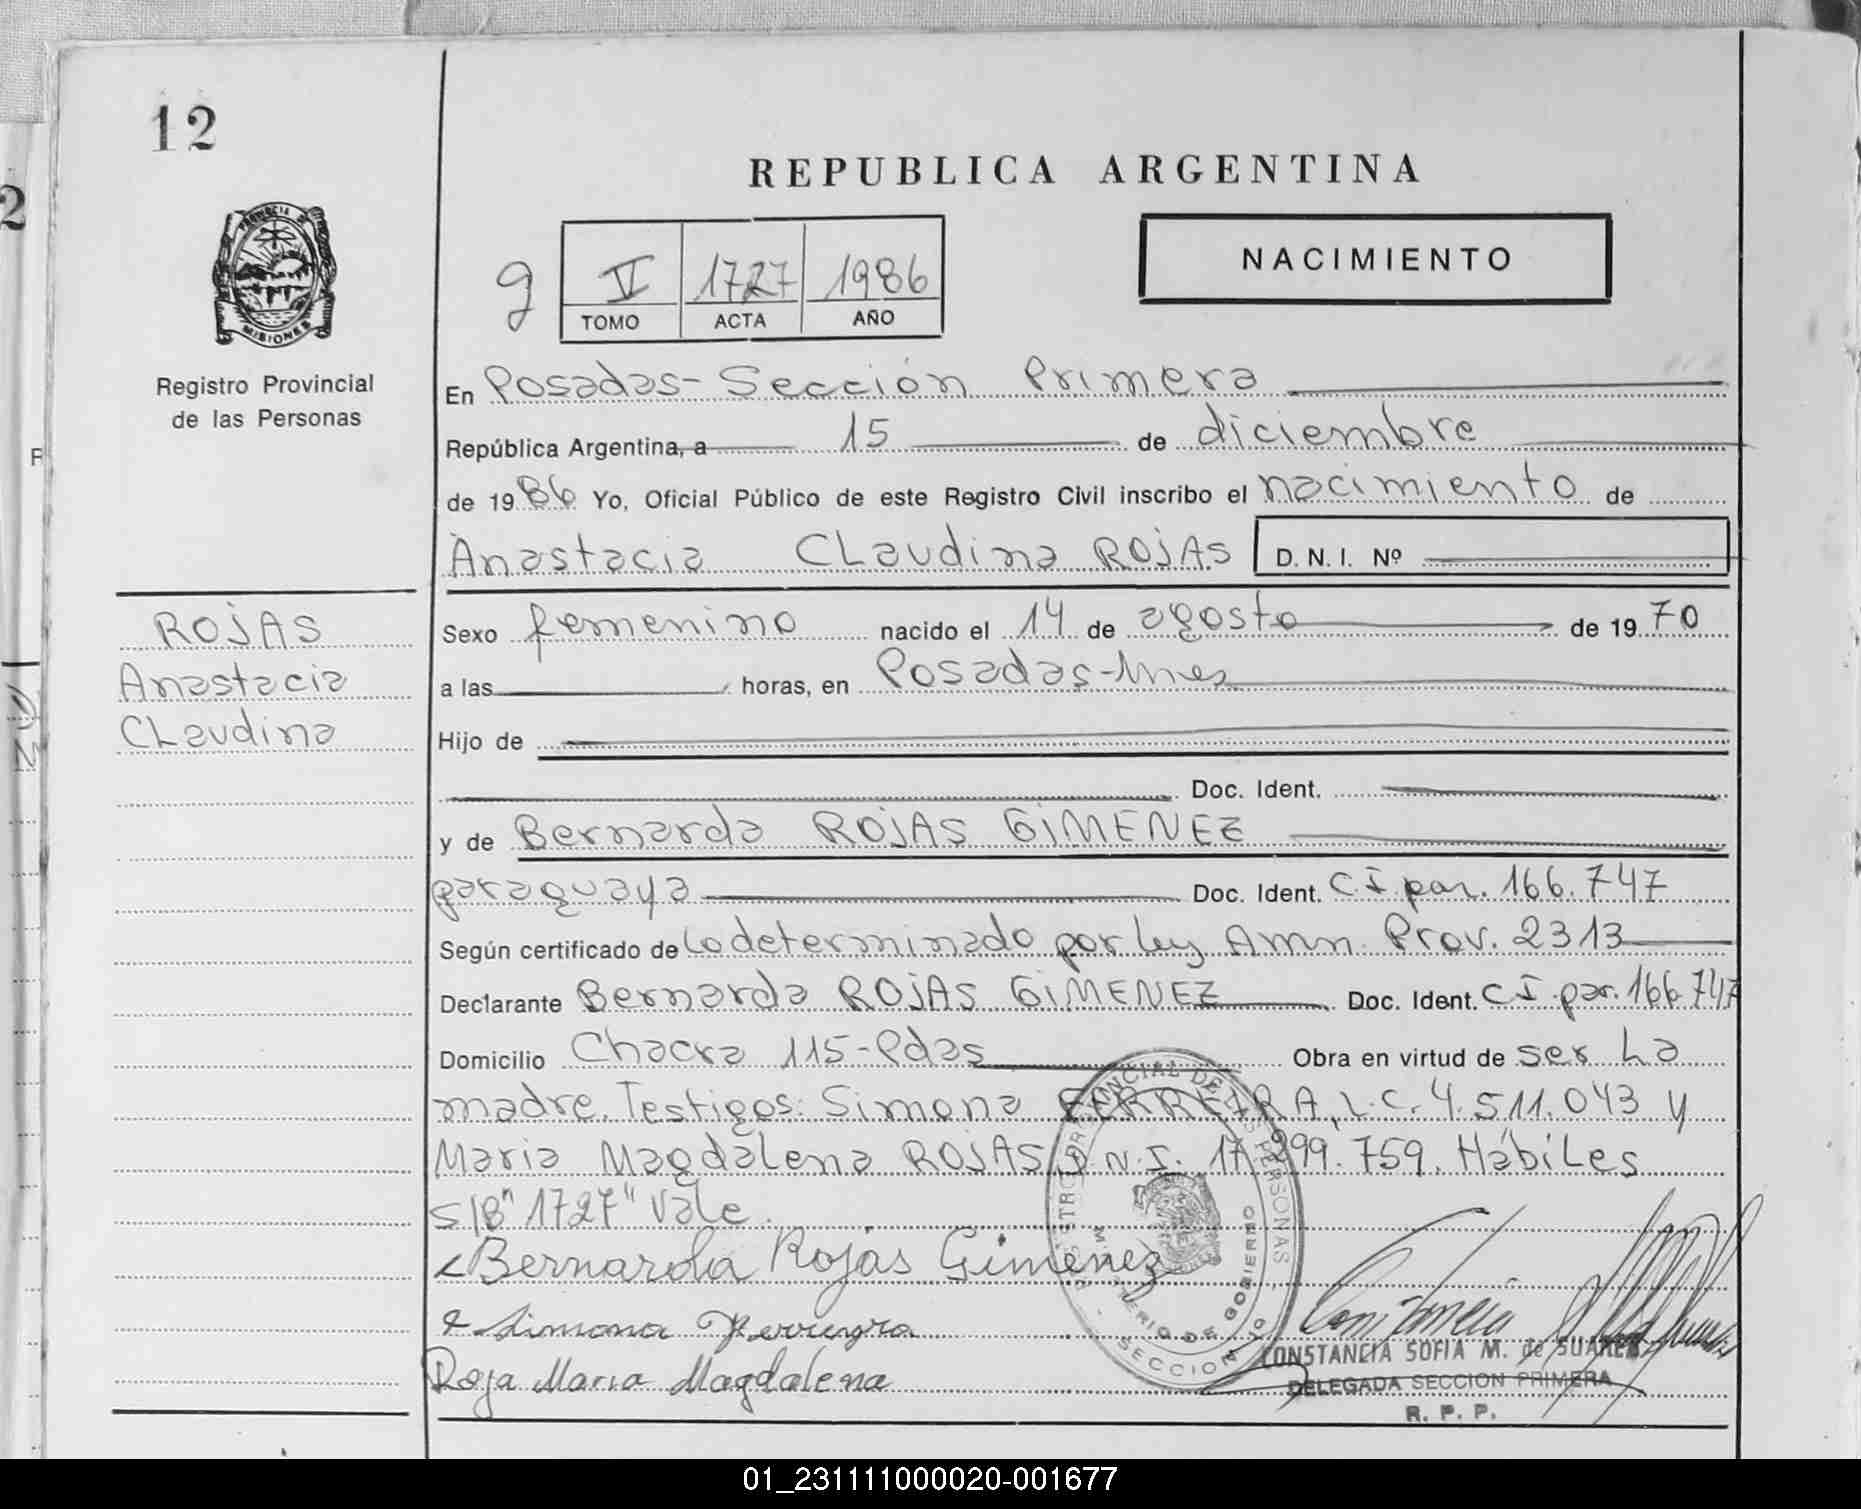 12
2
REPUBLICA ARGENTINA
PROVINCIA DE
MISIONES
Registro Provincial
de las Personas
g V 1727 1986
TOMO ACTA AÑO
NACIMIENTO
En Posadas-Sección Primera
República Argentina, a 15 de diciembre
de 1986 Yo, Oficial Público de este Registro Civil inscribo el nacimiento de
Anastacia Claudina ROJAS D. N. I. Nº
ROJAS
Anastacia
Claudina
Sexo femenino nacido el 14 de agosto de 1970
a las horas, en Posadas-Mnes
Hijo de
Doc. Ident.
y de Bernarda ROJAS GIMENEZ
paraguaya Doc. Ident. C.I. par. 166.747
Según certificado de lo determinado por ley Amn. Prov. 2313
Declarante Bernarda ROJAS GIMENEZ Doc. Ident. C I par. 166.747
Domicilio Chacra 115-Pdas Obra en virtud de ser la
madre. Testigos: Simona FERREIRA, L.C. 4.511.043 y
Maria Magdalena ROJAS D.N.I. 17.299.759. Hábiles
S/B "1727" Vale.
Bernarda Rojas Gimenez
Simona Ferreyra
Roja Maria Magdalena
REGISTRO PROVINCIAL DE LAS PERSONAS
MINISTERIO DE GOBIERNO
SECCION 1º
CONSTANCIA SOFIA M. de SUAREZ
DELEGADA SECCION PRIMERA
R. P. P.
01_231111000020-001677